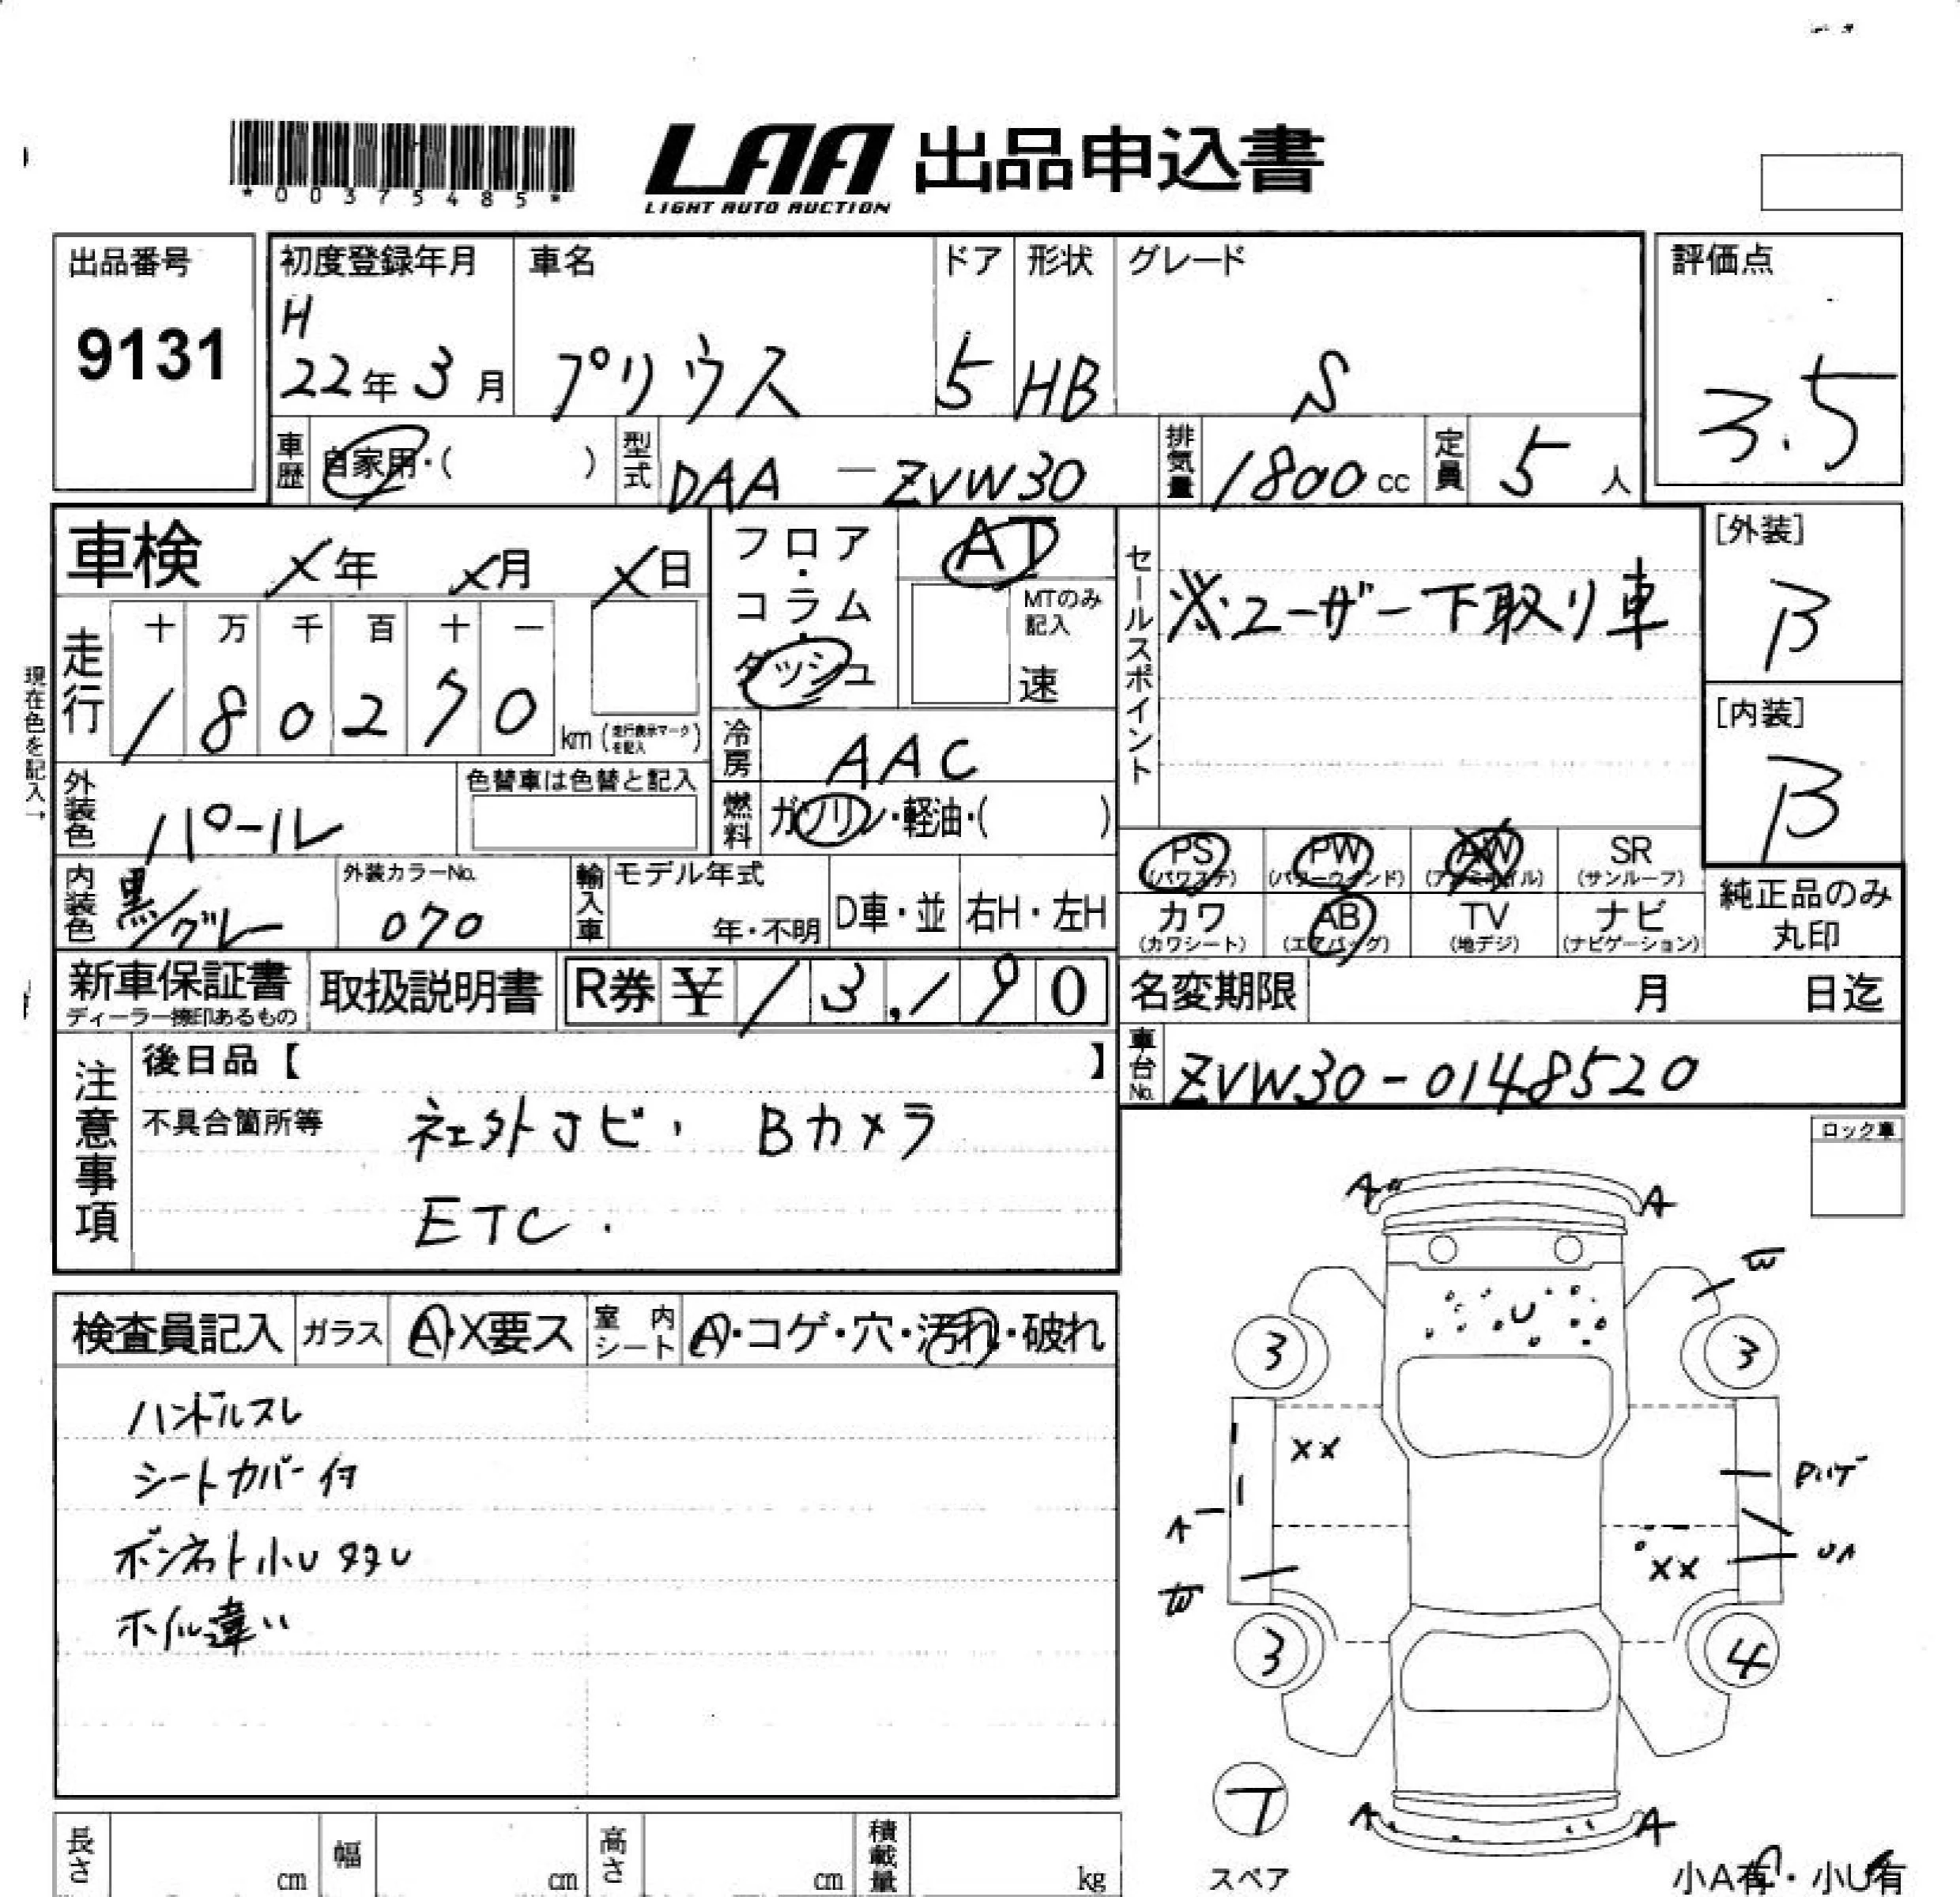 *00375485*
LAA 出品申込書
LIGHT AUTO AUCTION
出品番号
9131
初度登録年月
H
22年 3月
車名
プリウス
ドア
5
形状
HB
グレード
S
評価点
3.5
車歴 自家用・( )
型式 DAA - ZVW30
排気量 1800 cc
定員 5 人
車検 X年 X月 X日
走行
十 万 千 百 十 一
1 8 0 2 7 0 km (走行表示マークを記入)
フロア・コラム・ダッシュ
AT
MTのみ記入
速
冷房 AAC
燃料 ガソリン・軽油・( )
セールスポイント
※ユーザー下取り車
[外装]
B
[内装]
B
現在色を記入→
外装色 パール
色替車は色替と記入
内装色 黒/グレー
外装カラーNo.
070
輸入車
モデル年式
年・不明
D車・並
右H・左H
PS (パワステ)
PW (パワーウィンド)
AW (アルミホイル)
SR (サンルーフ)
カワ (カワシート)
AB (エアバッグ)
TV (地デジ)
ナビ (ナビゲーション)
純正品のみ
丸印
新車保証書
ディーラー捺印あるもの
取扱説明書
R券 ¥ 13,190
名変期限 月 日迄
車台No. ZVW30-0148520
注意事項
後日品【 】
不具合箇所等
社外ナビ、Bカメラ
ETC.
ロック車
検査員記入
ガラス A・X要ス
室内シート A・コゲ・穴・汚れ・破れ
ハンドルスレ
シートカバー付
ボンネット小U多々U
ホイル違い
A A
W
U
3 3
XX
A
XX
UA
W
3 4
T
スペア
A A
小A有・小U有
長さ cm
幅 cm
高さ cm
積載量 kg